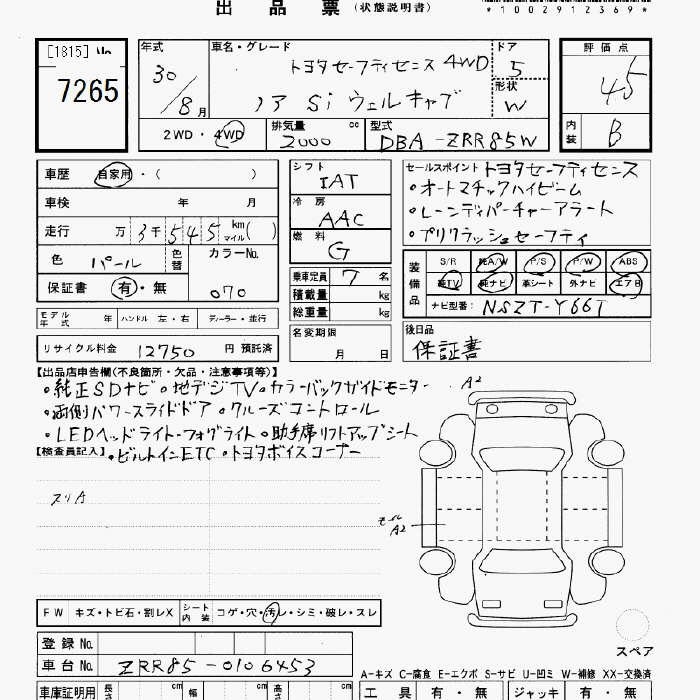 出品票 (状態説明書)
*1002912369*
[1815] No.
7265
年式 30/8月
車名・グレード トヨタセーフティセンス 4WD
ノア Si ウェルキャブ
ドア 5
形状 W
評価点 4.5
内装 B
2WD・4WD
排気量 2000 cc
型式 DBA-ZRR85W
車歴 自家用・( )
車検 年 月
走行 万3千545 km マイル( )
色 パール 色替 カラーNo. 070
保証書 有・無
シフト IAT
冷房 AAC
燃料 G
乗車定員 7 名
積載量 kg
総重量 kg
セールスポイント トヨタセーフティセンス
・オートマチックハイビーム
・レーンディパーチャーアラート
・プリクラッシュセーフティ
装備品 S/R 純A/W P/S P/W ABS
純TV 純ナビ 革シート 外ナビ エアB
ナビ型番: NSZT-Y66T
モデル年式 年 ハンドル 左・右 ディーラー・並行
リサイクル料金 12750 円 預託済
名変期限 月 日
後日品
保証書
【出品店申告欄(不良箇所・欠品・注意事項等)】
・純正SDナビ・地デジTV・カラーバックガイドモニター
・両側パワースライドドア・クルーズコントロール
・LEDヘッドライト・フォグライト・助手席リフトアップシート
【検査員記入】・ビルトインETC・トヨタボイスコーナー
スリA
A2
モール A2
FW キズ・トビ石・割レX シート内装 コゲ・穴・汚レ・シミ・破レ・スレ
スペア
登録No.
車台No. ZRR85-0106453
A-キズ C-腐食 E-エクボ S-サビ U-凹ミ W-補修 XX-交換済
車庫証明用 長さ cm 幅 cm 高さ cm
工具 有・無 ジャッキ 有・無